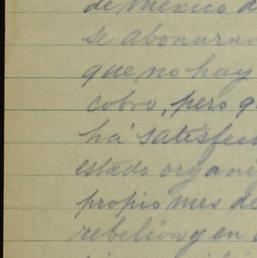 de Mexico d
se abonara
que no hay
cobro, pero q
há satisfec
estado organi
propio mes de
rebelion y en